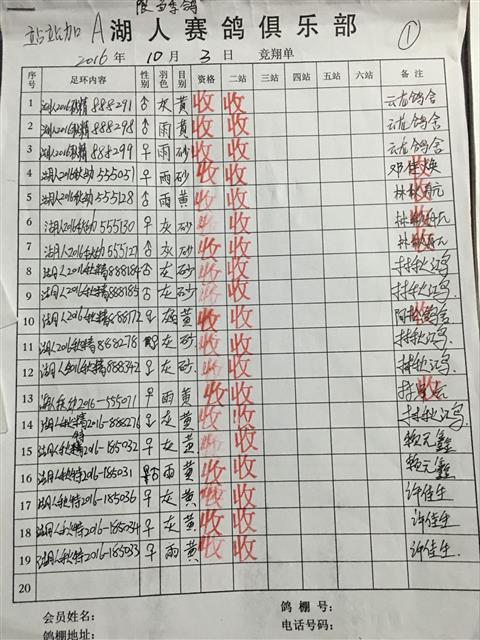 站站加 A 湖人赛鸽俱乐部 ①
2016年 10月 3日 竞翔单
序号 足环内容 性别 羽色 目别 资格 二站 三站 四站 五站 六站 备注
1 湖人2016秋精888291 ♂ 灰 黄 收 收 云龙鸽舍
2 湖人2016秋精888298 ♂ 雨 黄 收 收 云龙鸽舍
3 湖人2016秋精888299 ♀ 雨 砂 收 收 云龙鸽舍
4 湖人2016秋幼555051 ♀ 雨 砂 收 收 收
5 湖人2016秋幼555128 ♂ 雨 黄 收 收 收
6 湖人2016秋幼555130 ♀ 灰 砂 收 收 收
7 湖人2016秋幼555127 ♂ 灰 砂 收 收 收
8 湖人2016秋精888184 ♂ 灰 砂 收 收 林秋鸿
9 湖人2016秋精888185 ♂ 灰 砂 收 收 林秋鸿
10 湖人2016秋精888172 ♀ 黄 收 收 收 鸽舍
11 湖人2016秋精888278 灰 砂 收 收 林秋鸿
12 湖人2016秋精888342 ♀ 灰 砂 收 收 林秋鸿
13 湖人秋幼2016-555071 ♀ 雨 黄 收 收 收
14 湖人秋精2016-888276 ♀ 灰 黄 收 收 林秋鸿
15 湖人秋特2016-185032 ♀ 灰 黄 收 收 赖元鑫
16 湖人秋特2016-185031 雨 黄 收 收 赖元鑫
17 湖人秋特2016-185036 ♀ 灰 黄 收 收 许佳生
18 湖人秋特2016-185034 ♀ 灰 黄 收 收 许佳生
19 湖人秋特2016-185033 ♀ 雨 黄 收 收 许佳生
20
会员姓名: 鸽棚号:
鸽棚地址: 电话号码: